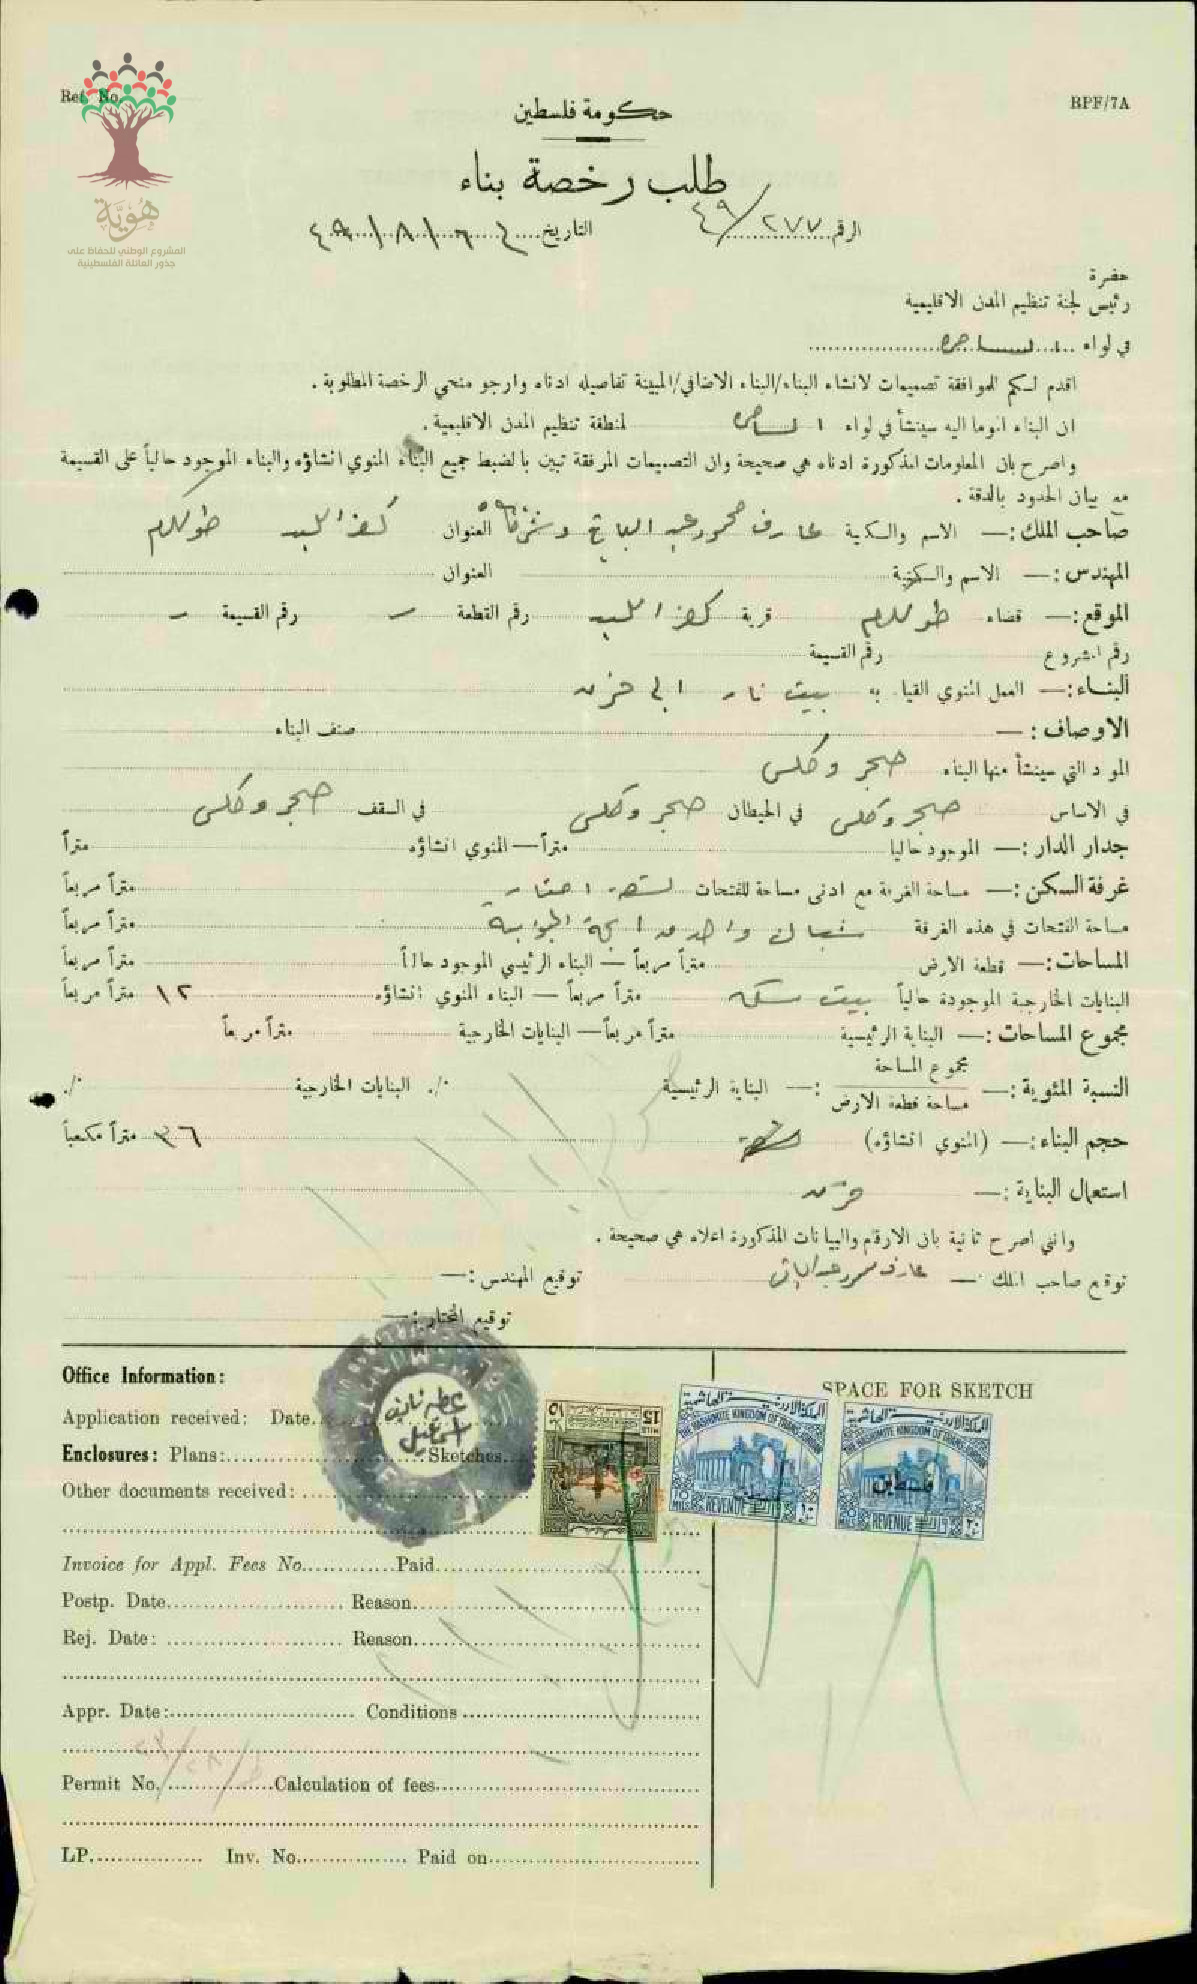 Ref. No.
RPF/7A
هُوِيَّة
المشروع الوطني للحفاظ على
جذور العائلة الفلسطينية
حكومة فلسطين
طلب رخصة بناء
الرقم ٢٧٧/٤٩ التاريخ
حضرة
رئيس لجنة تنظيم المدن الاقليمية
في لواء
اقدم لكم للموافقة تصميمات لانشاء البناء/البناء الاضافي/المبينة تفاصيله ادناه وارجو منحي الرخصة المطلوبة .
ان البناء الموما اليه سينشأ في لواء لمنطقة تنظيم المدن الاقليمية .
واصرح بان المعلومات المذكورة ادناه هي صحيحة وان التصميمات المرفقة تبين بالضبط جميع البناء المنوي انشاؤه والبناء الموجود حالياً على القسيمة
مع بيان الحدود بالدقة .
صاحب الملك :— الاسم والكنية عارف محمود عبد الباقي وشركاه العنوان كفر اللبد طولكرم
المهندس :— الاسم والكنية العنوان
الموقع :— قضاء طولكرم قرية كفر اللبد رقم القطعة — رقم القسيمة —
رقم المشروع رقم القسيمة
البناء :— العمل المنوي القيام به بيت نار
الاوصاف :— صنف البناء
المواد التي سينشأ منها البناء حجر وكلس
في الاساس حجر وكلس في الحيطان حجر وكلس في السقف حجر وكلس
جدار الدار :— الموجود حاليا متراً — المنوي انشاؤه متراً
غرفة السكن :— مساحة الغرفة مع ادنى مساحة للفتحات متراً مربعاً
مساحة الفتحات في هذه الغرفة شباك واحد متراً مربعاً
المساحات :— قطعة الارض متراً مربعاً — البناء الرئيسي الموجود حالاً متراً مربعاً
البنايات الخارجية الموجودة حالياً بيت سكن متراً مربعاً — البناء المنوي انشاؤه ١٢ متراً مربعاً
مجموع المساحات :— البناية الرئيسية متراً مربعاً — البنايات الخارجية متراً مربعاً
النسبة المئوية :— مجموع المساحة
مساحة قطعة الارض :— البناية الرئيسية ./° البنايات الخارجية ./°
حجم البناء :— (المنوي انشاؤه) ٣٦ متراً مكعباً
استعمال البناية :—
وانني اصرح ثانية بان الارقام والبيانات المذكورة اعلاه هي صحيحة .
توقيع صاحب الملك :— عارف محمود عبد الباقي توقيع المهندس :—
توقيع المختار :—
Office Information:
Application received: Date
Enclosures: Plans: Sketches
Other documents received:
Invoice for Appl. Fees No. Paid
Postp. Date Reason
Rej. Date: Reason
Appr. Date: Conditions
Permit No. Calculation of fees
LP. Inv. No. Paid on
SPACE FOR SKETCH
15
المملكة الاردنية الهاشمية
THE HASHEMITE KINGDOM OF TRANS-JORDAN
MILS REVENUE
المملكة الاردنية الهاشمية
THE HASHEMITE KINGDOM OF TRANS-JORDAN
فلسطين
MILS REVENUE